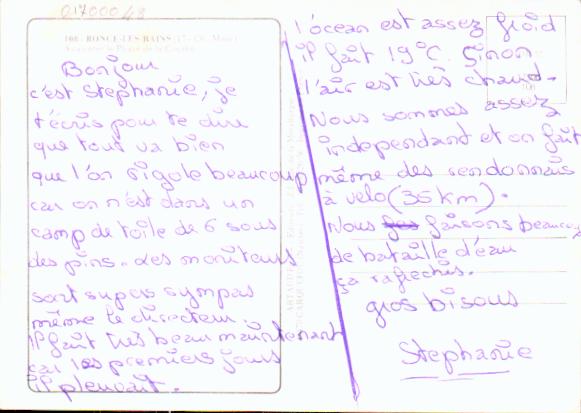 01700048
108 - RONCE-LES-BAINS (17 - Ch. Mme)
Bonjour
c'est Stephanie, je
t'écris pour te dire
que tout va bien
que l'on rigole beaucoup
car on n'est dans un
camp de toile de 6 sous
des pins. Les moniteurs
sont supers sympas
même le directeur.
il fait très beau maintenant
car les premiers jours
il pleuvait.
l'ocean est assez froid
il fait 19°C. Sinon
l'air est très chaud.
Nous sommes assez
independant et on fait
même des rendonnais
à velo (35 km).
Nous faisons beaucoup
de bataille d'eau
ça rafrechis.
gros bisous
Stephanie